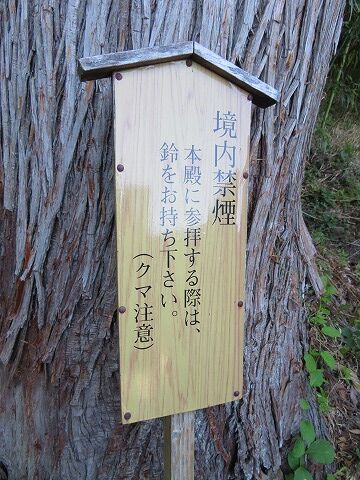 境内禁煙
本殿に参拝する際は、
鈴をお持ち下さい。
（クマ注意）